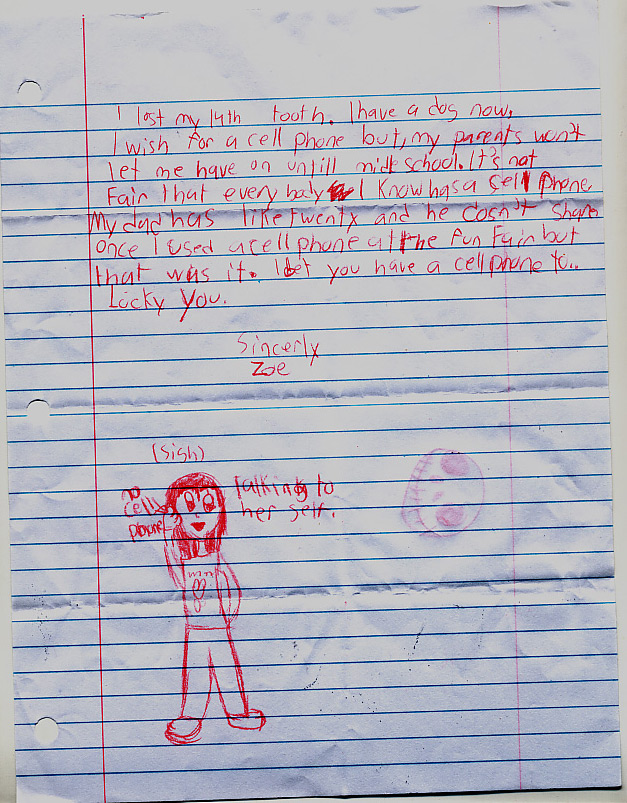 I lost my 14th tooth. I have a dog now,
I wish for a cell phone but, my parents won't
let me have on untill midle school. It's not
Fair that every body I know has a sell phone
My dad has like twenty and he dosn't share
once I used a cell phone at the fun fair but
that was it. I bet you have a cell phone to..
Lucky you.
Sincerly
Zoe
(sigh)
no
cell
phone
Talking to
her self.